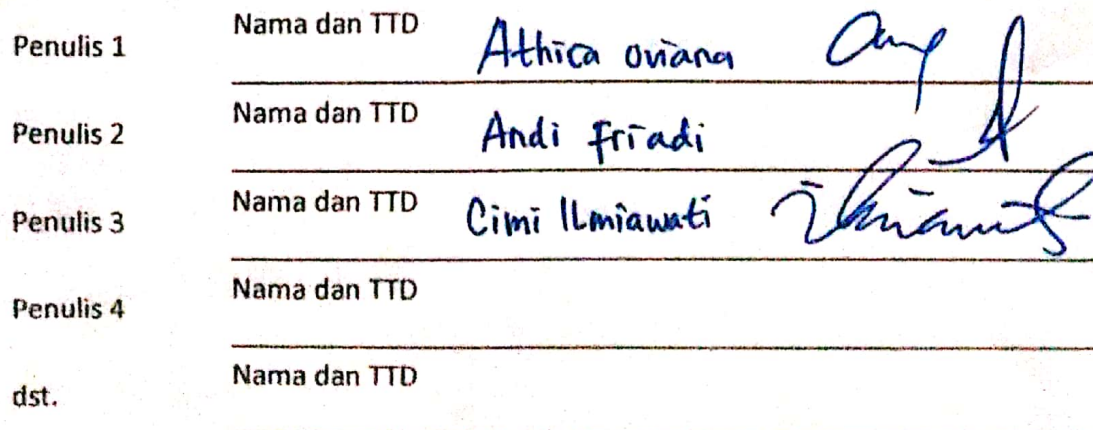 Penulis 1 Nama dan TTD Athica oviana
Penulis 2 Nama dan TTD Andi friadi
Penulis 3 Nama dan TTD Cimi Ilmiawati
Penulis 4 Nama dan TTD
dst. Nama dan TTD